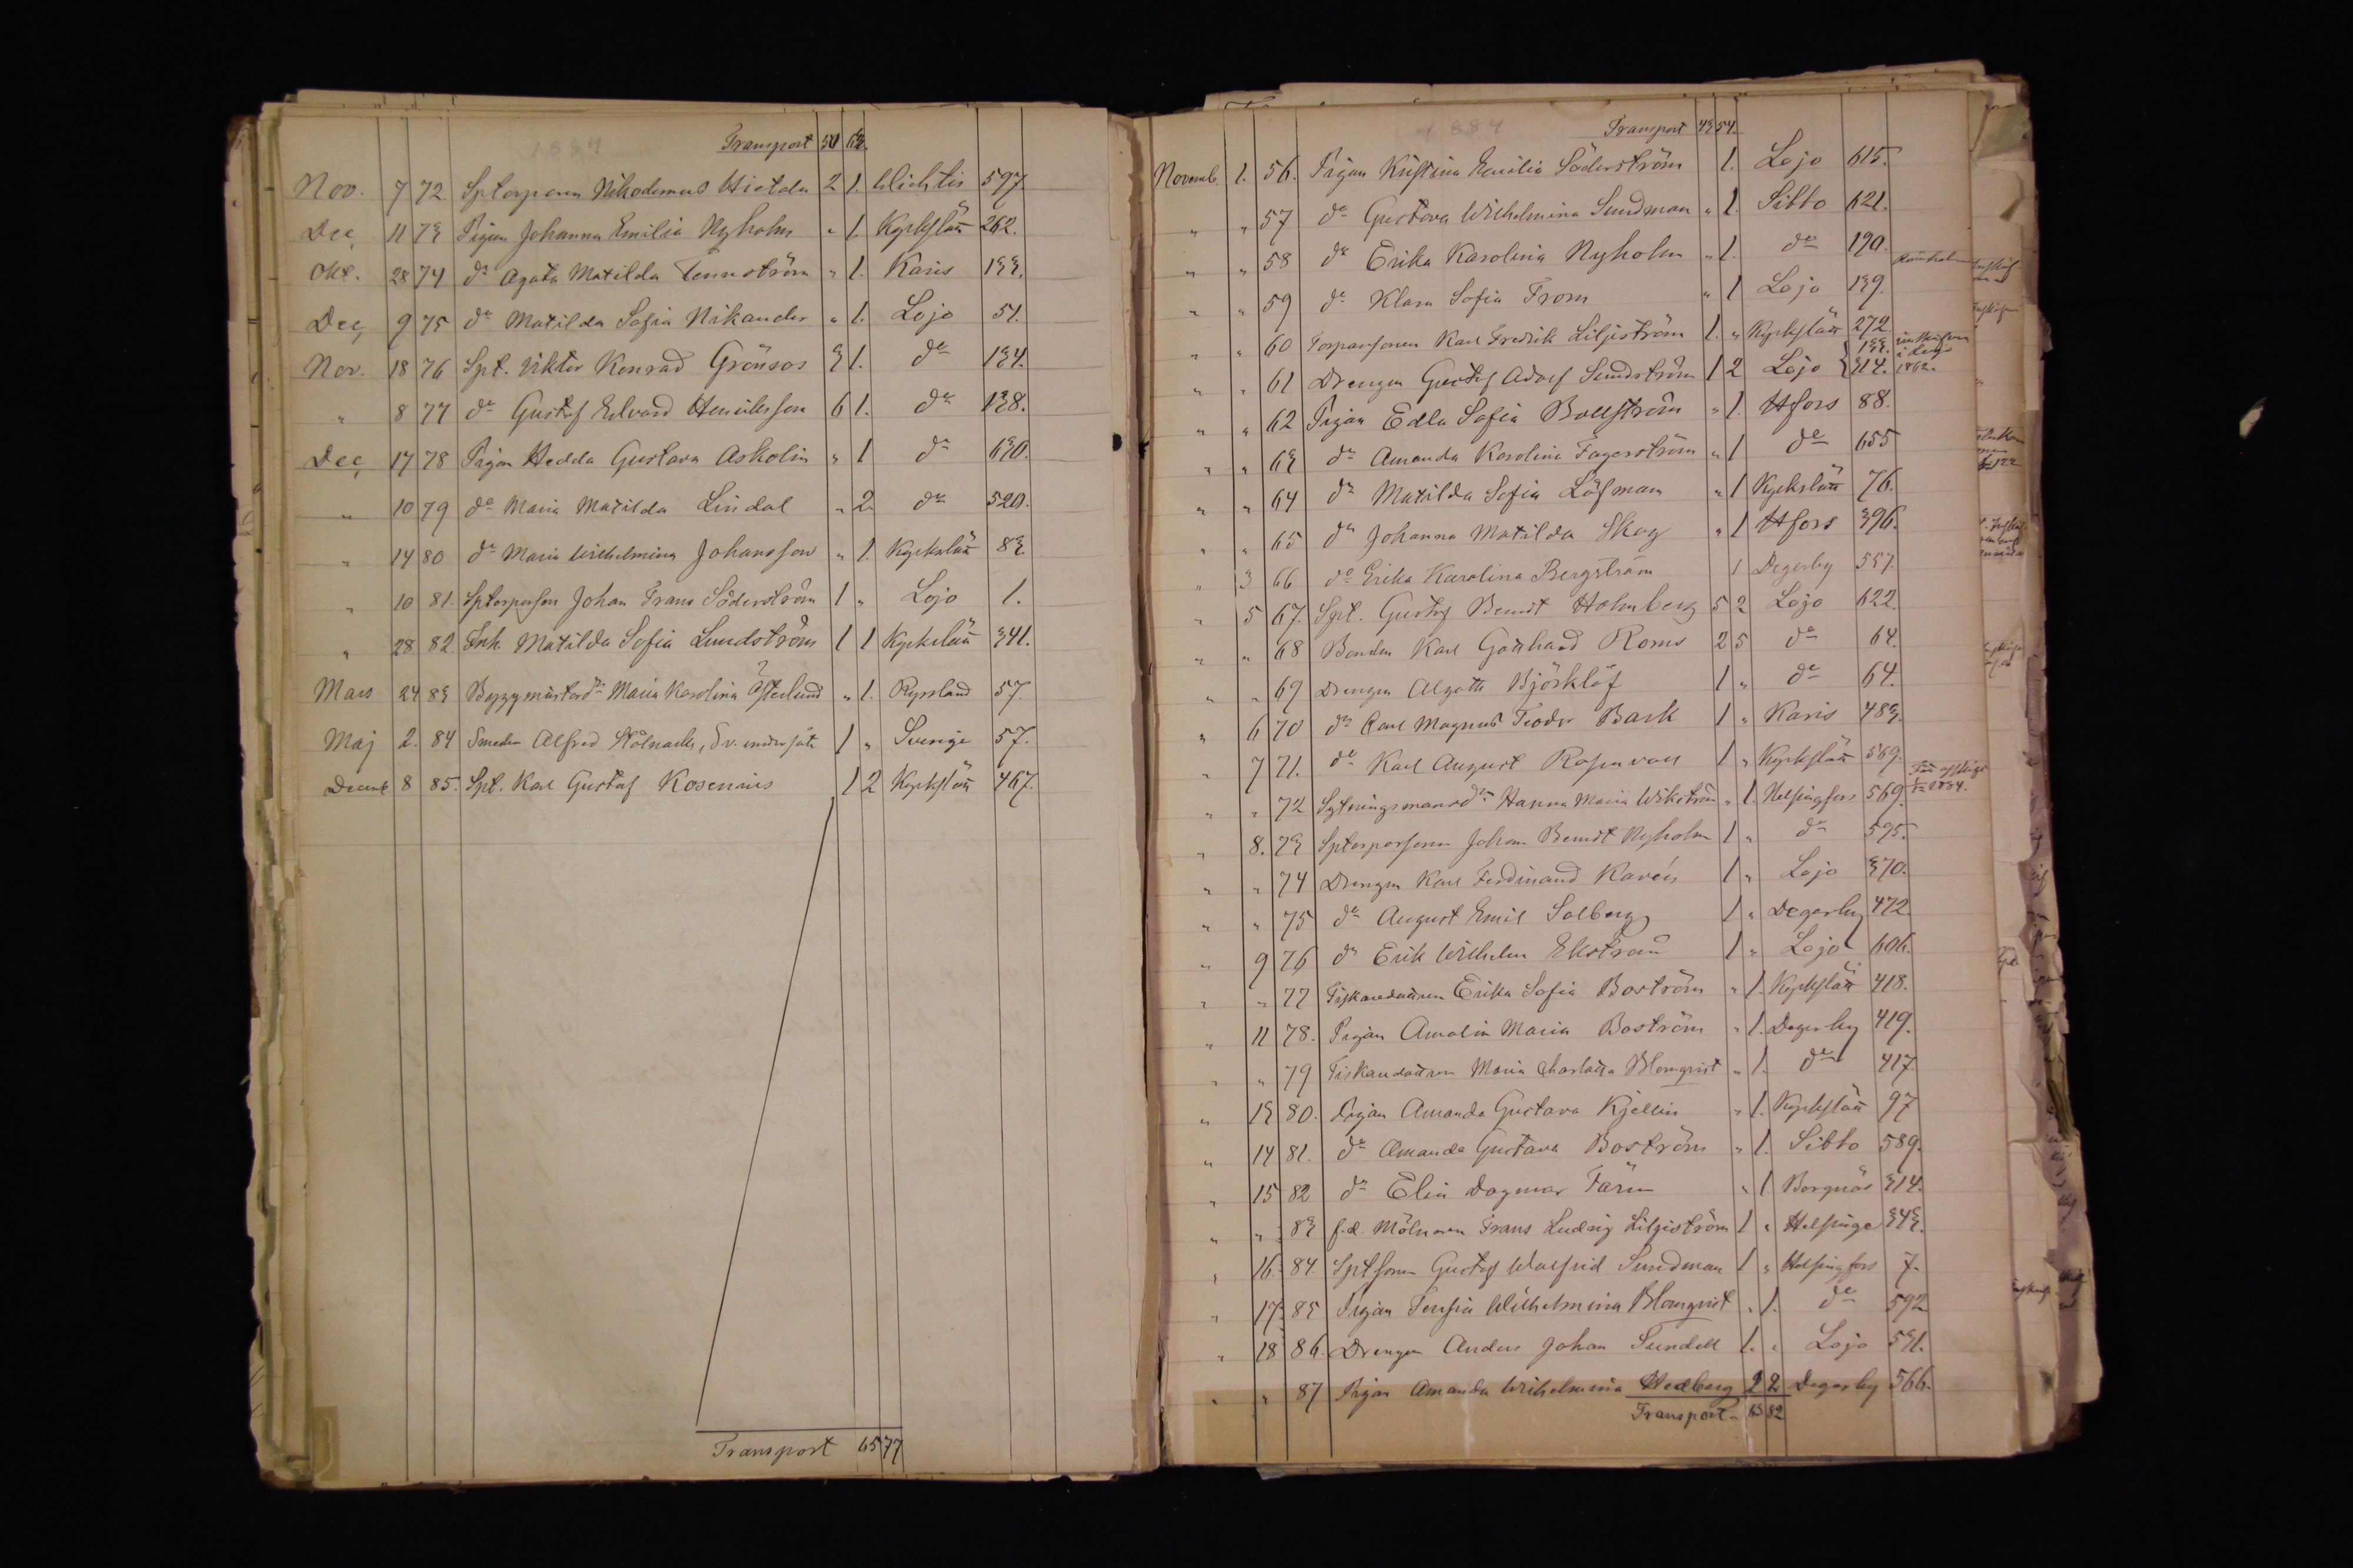 1884
Transport 50 63.
Nov. 7 72 Sptorparen Nikodemus Hietala 2 1. Wichtis 597
Dec. 11 73 Pigan Johanna Emilia Nyholm " 1. Kyrkslätt 262.
Okt. 28 74 do Agata Matilda Tennström " 1. Karis 133.
Dec. 9 75 do Matilda Sofia Nikander " 1. Lojo 51.
Nov. 18 76 Spt. Viktor Konrad Grönroos 3 1. do 134.
" 8 77 do Gustaf Edvard Henriksson 6 1. do 138.
Dec. 17 78 Pigan Hedda Gustava Askolin " 1 do 630.
" 10 79 do Maria Matilda Lindal " 2. do 520.
" 14 80 do Maria Wilhelmina Johansson " 1. Kyrkslätt 83
" 10 81. Sptorpson Johan Frans Söderström 1 " Lojo 1.
" 28 82. Inh. Matilda Sofia Lundström 1 1 Kyrkslätt 341.
Mars 24 83 Byggmästard:n Maria Karolina Österlund " 1. Ryssland 57.
Maj 2. 84 Smeden Alfred Sv. undersåte 1 " Sverige 57.
Decemb 8 85. Spt. Karl Gustaf Rosenius 1 2 Kyrkslätt 467.
Transport 65 77
1884
Transport 43 54.
Novemb. 1. 56. Pigan Kristina Emilia Söderström 1. Lojo 615.
" " 57 do Gustava Wilhelmina Sundman " 1. Sibbo 621.
" " 58 do Erika Karolina Nyholm " 1. do 190.
" " 59 do Klara Sofia From " 1 Lojo 139.
" " 60 Torparsonen Karl Fredrik Liljeström 1. " Kyrkslätt 272
" " 61 Drengen Gustaf Adolf Sundström 1 2 Lojo {133. 314. 1862.
" " 62 Pigan Edla Sofia Bollström " 1. Hfors 88.
" " 63 do Amanda Karolina Fagerström " 1 do 655
" " 64 do Matilda Sofia Löfman " 1 Kyrkslätt 76.
" " 65 do Johanna Matilda Skog " 1 Hfors 396.
" 3 66 do Erika Karolina Bergström 1 Degerby 557.
" 5 67. Spt. Gustaf Berndt Holmberg 5 2 Lojo 622.
" " 68 Bonden Karl Gotthard Roms 2 5 do 64.
" " 69 Drengen Algoth Björklöf 1 " do 64.
" 6 70 do Carl Magnus Teodor Bask 1 " Karis 483.
" 7 71. do Karl August Rosenvall 1 " Kyrkslätt 569.
" " 72 Sytningsmansd:n Hanna Maria Wikström " 1. Helsingfors 569. 1884.
" 8. 73 Sptorparsonen Johan Berndt Nyholm 1 " do 595.
" " 74 Drengen Karl Ferdinand Karén 1 " Lojo 370.
" " 75 do August Emil Solberg 1 " Degerby 472.
" 9 76 do Erik Wilhelm Ekström 1 " Lojo 606.
" " 77 Fiskaredottren Erika Sofia Boström " 1. Kyrkslätt 418.
" 11 78. Pigan Amalia Maria Boström " 1. Degerby 419.
" " 79 Fiskaredottren Maria Charlotta Blomqvist " 1. do 417.
" 13 80. Pigan Amanda Gustava Kjellin " 1. Kyrkslätt 97
" 14 81. do Amanda Gustava Boström " 1. Sibbo 589.
" 15 82 do Elin Dagmar Färm " 1 Borgnäs 314.
" " 83 f.d. Mölnaren Frans Ludvig Liljeström 1 " Helsinge 343.
" 16 84 Sptsonen Gustaf Walfrid Sundman 1 " Helsingfors 7.
" 17 85 Pigan Wilhelmina Blomqvist " 1. do 592
" 18 86. Drengen Anders Johan Sundell 1. " Lojo 531.
" " 87 Pigan Amanda Wilhelmina Hedberg 2 2 Degerby 566.
Transport 65 82